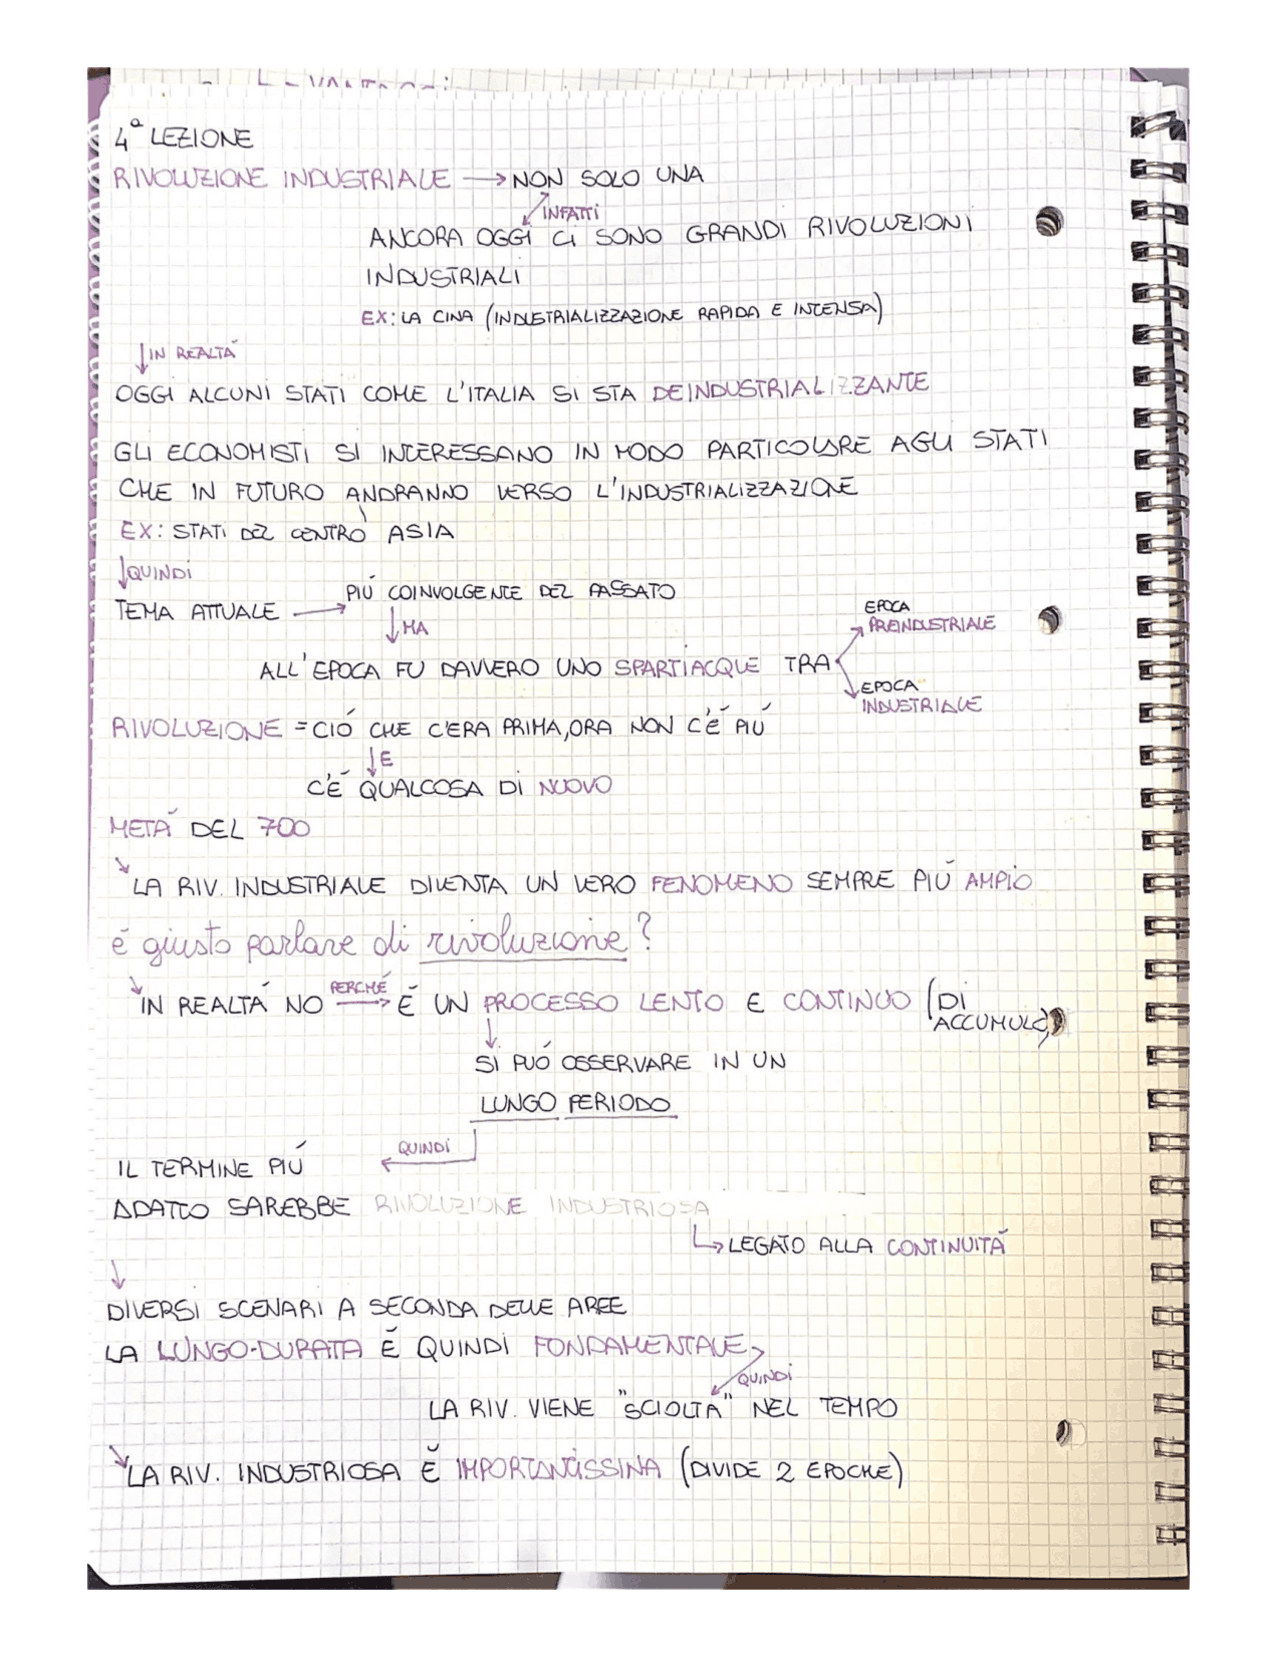 4ª LEZIONE
RIVOLUZIONE INDUSTRIALE → NON SOLO UNA
INFATTI
ANCORA OGGI CI SONO GRANDI RIVOLUZIONI
INDUSTRIALI
EX: LA CINA (INDUSTRIALIZZAZIONE RAPIDA E INTENSA)
↓ IN REALTÀ
OGGI ALCUNI STATI COME L'ITALIA SI STA DEINDUSTRIALIZZANTE
GLI ECONOMISTI SI INTERESSANO IN MODO PARTICOLARE AGLI STATI
CHE IN FUTURO ANDRANNO VERSO L'INDUSTRIALIZZAZIONE
EX: STATI DEL CENTRO ASIA
↓ QUINDI
TEMA ATTUALE → PIÚ COINVOLGENTE DEL PASSATO
↓ MA
ALL'EPOCA FU DAVVERO UNO SPARTIACQUE TRA
EPOCA
PREINDUSTRIALE
EPOCA
INDUSTRIALE
RIVOLUZIONE = CIÓ CHE C'ERA PRIMA, ORA NON C'É PIÚ
↓ E
C'É QUALCOSA DI NUOVO
METÀ DEL 700
↘ LA RIV. INDUSTRIALE DIVENTA UN VERO FENOMENO SEMPRE PIÚ AMPIO
é giusto parlare di rivoluzione?
↘ IN REALTÀ NO PERCHÉ → É UN PROCESSO LENTO E CONTINUO (DI
ACCUMULO)
↓
SI PUÓ OSSERVARE IN UN
LUNGO PERIODO
QUINDI
IL TERMINE PIÚ
ADATTO SAREBBE RIVOLUZIONE INDUSTRIOSA
↳ LEGATO ALLA CONTINUITÀ
↓
DIVERSI SCENARI A SECONDA DELLE AREE
LA LUNGO-DURATA É QUINDI FONDAMENTALE
QUINDI
LA RIV. VIENE "SCIOLTA" NEL TEMPO
↘ LA RIV. INDUSTRIOSA É IMPORTANTISSINA (DIVIDE 2 EPOCHE)